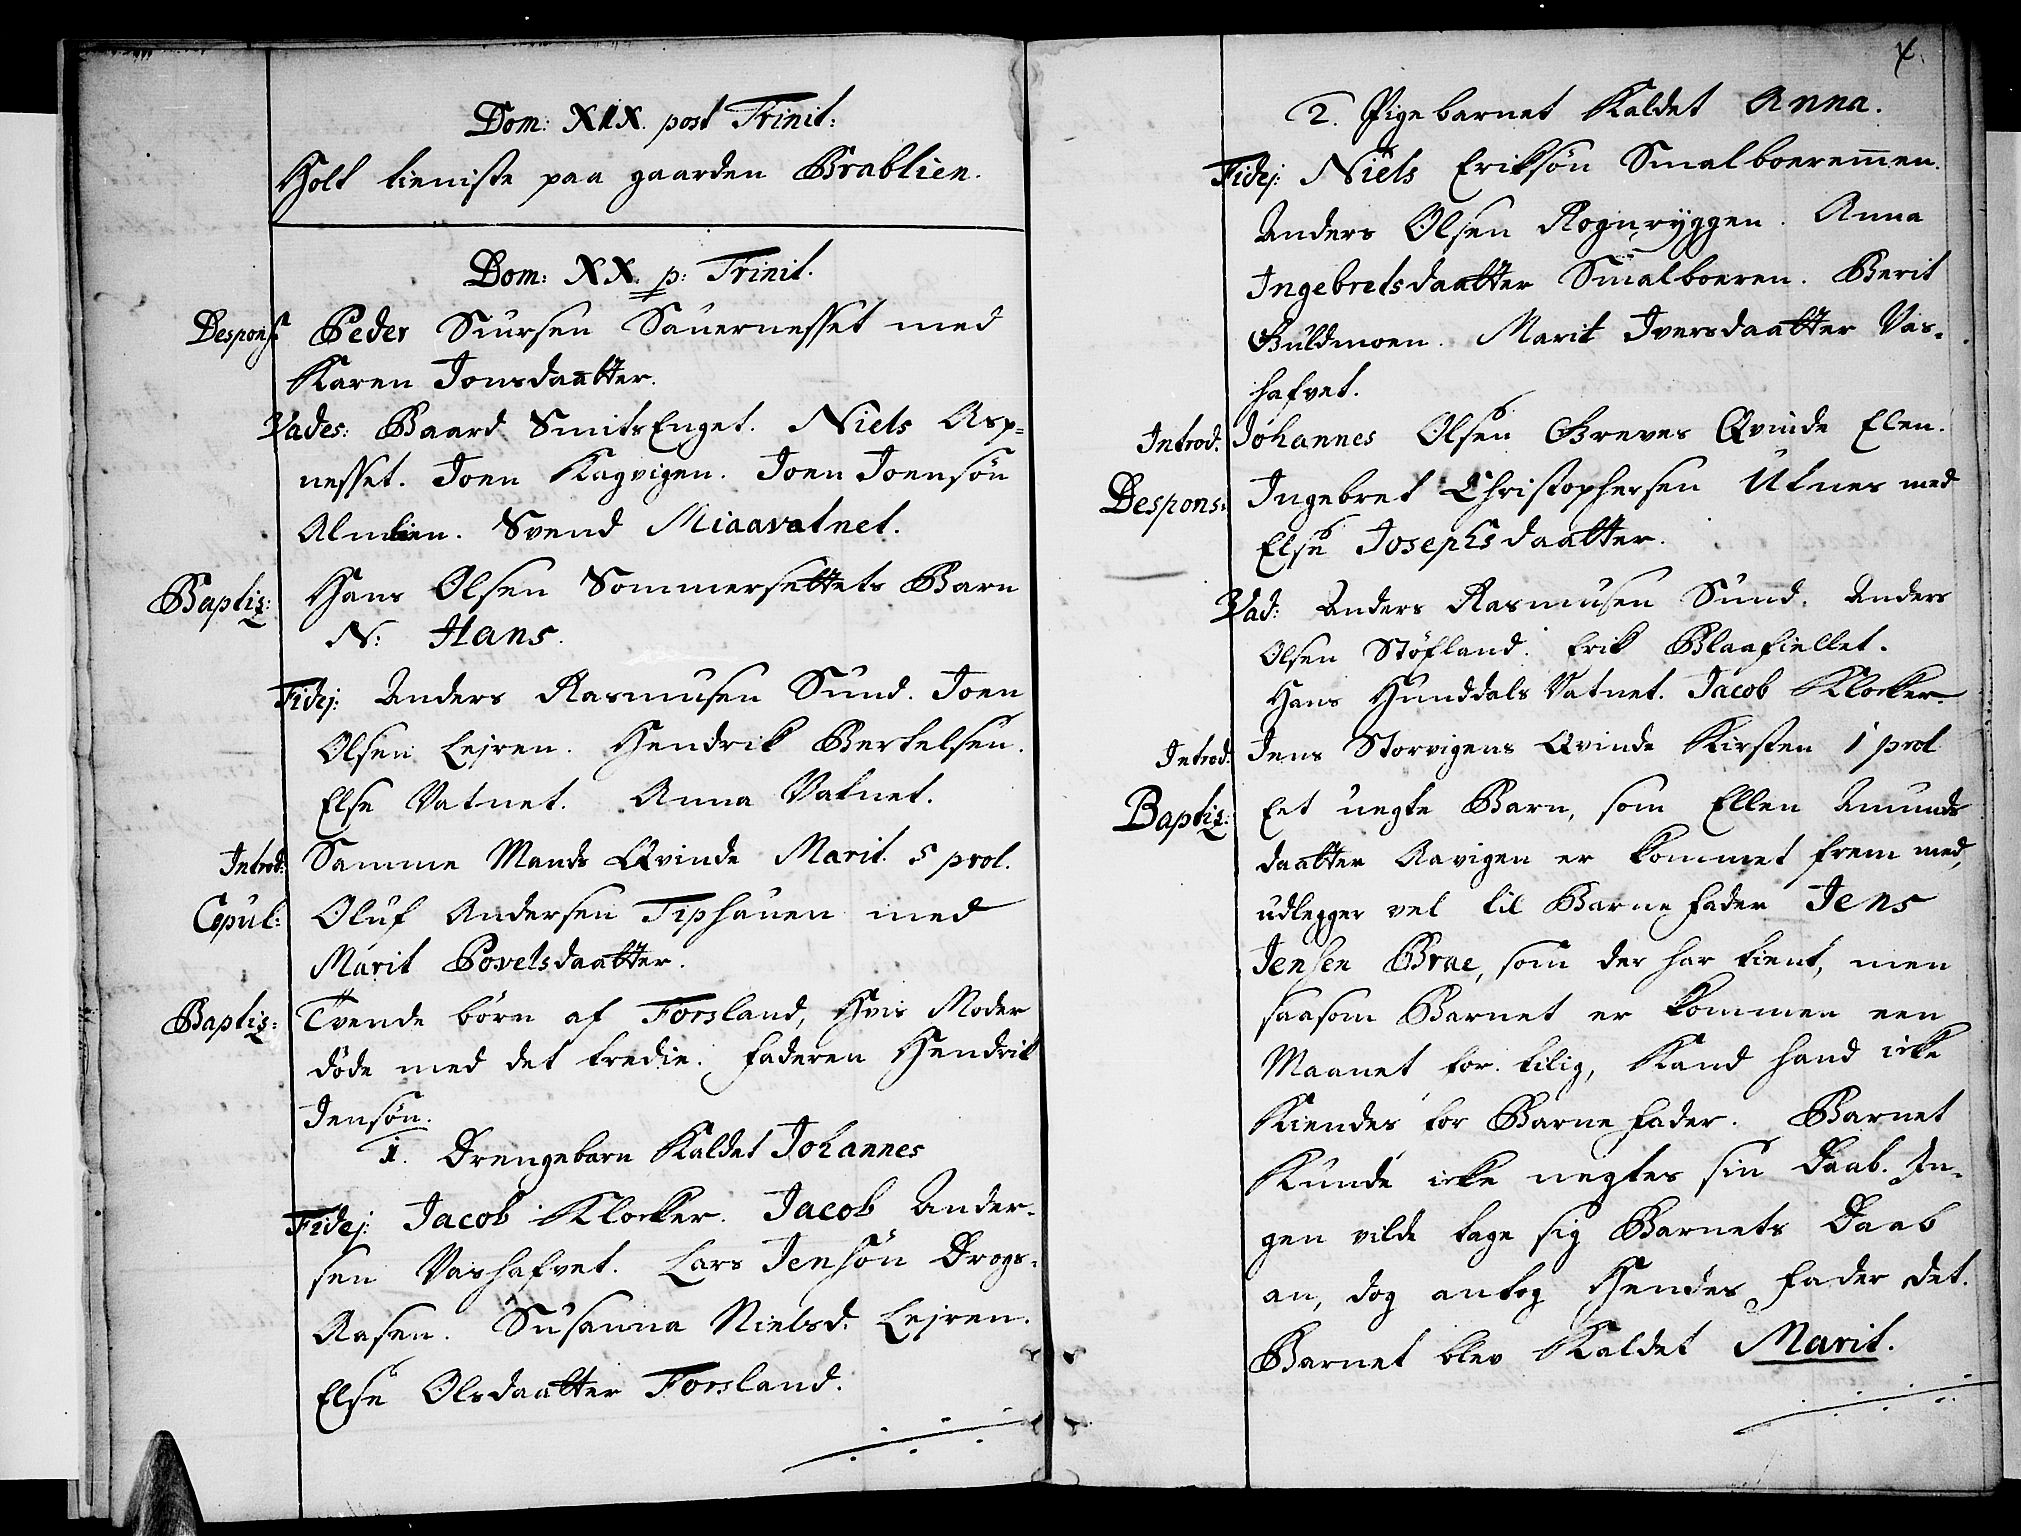 Dom: XIX. post Trinit:
Holt tieniste paa gaarden Brablien.
Dom: XX. p: Trinit.
Despons. Peder Siursen Sauernesset med
Karen Jonsdaatter.
Vades: Baard SmitsEnget. Niels Asp-
nesset. Joen Kagvigen. Joen Joensøn
Almlien. Svend Miaavatnet.
Baptiz: Hans Olsen Sommersettets Barn
N: Hans.
Fidej: Anders Rasmusen Sund. Joen
Olsen Lejren. Hendrik Bertelsen.
Else Vatnet. Anna Vatnet.
Introd: Samme Mands Qvinde Marit. 5 prol.
Copul: Oluf Andersen Tiphauen med
Marit Povelsdaatter.
Baptiz: Tvende børn af Forsland, Hvis Moder
døde med det tredie. faderen Hendrik
Jensøn.
1. Drengebarn Kaldet Johannes
Fidej: Jacob Klocker. Jacob Ander-
sen Vashafvet. Lars Jensøn Drogs-
Aasen. Susanna Nielsd. Lejren.
Else Olsdaatter Forsland.
2. Pigebarnet Kaldet Anna.
Fidej: Niels Eriksøn Smalboeremmen.
Anders Olsen Rognryggen. Anna
Ingebretsdaatter Smalboeren. Berit
Guldmoen. Marit Iversdaatter Vas-
hafvet.
Introd. Johannes Olsen Greves Qvinde Elen.
Despons: Ingebret Christophersen Utnes med
Else Josephsdaatter.
Vad: Anders Rasmusen Sund. Anders
Olsen Støfland. Erik Blaafiellet.
Hans Hunddals Vatnet. Jacob Klocker.
Introd. Jens Storvigens Qvinde Kirsten 1 prol
Baptiz: Eet uegte Barn, som Ellen Amunds
daatter Aavigen er kommet frem med,
udlegger vel til Barne fader Jens
Jensen Brae, som der har tient, men
saasom Barnet er kommen een
Maanet for tilig, Kand hand icke
Kiendes for Barne fader. Barnet
Kunde icke negtes sin Daab. In-
gen vilde tage sig Barnets Daab
an, dog antog Hendes fader det.
Barnet blev Kaldet Marit.